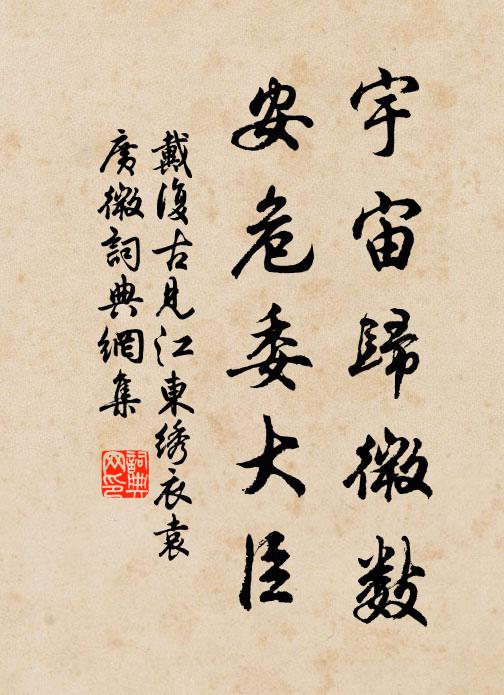 宇宙歸微數
安危委大臣
戴復古見江東綉衣袁
廣微詞典網集
詞典网印